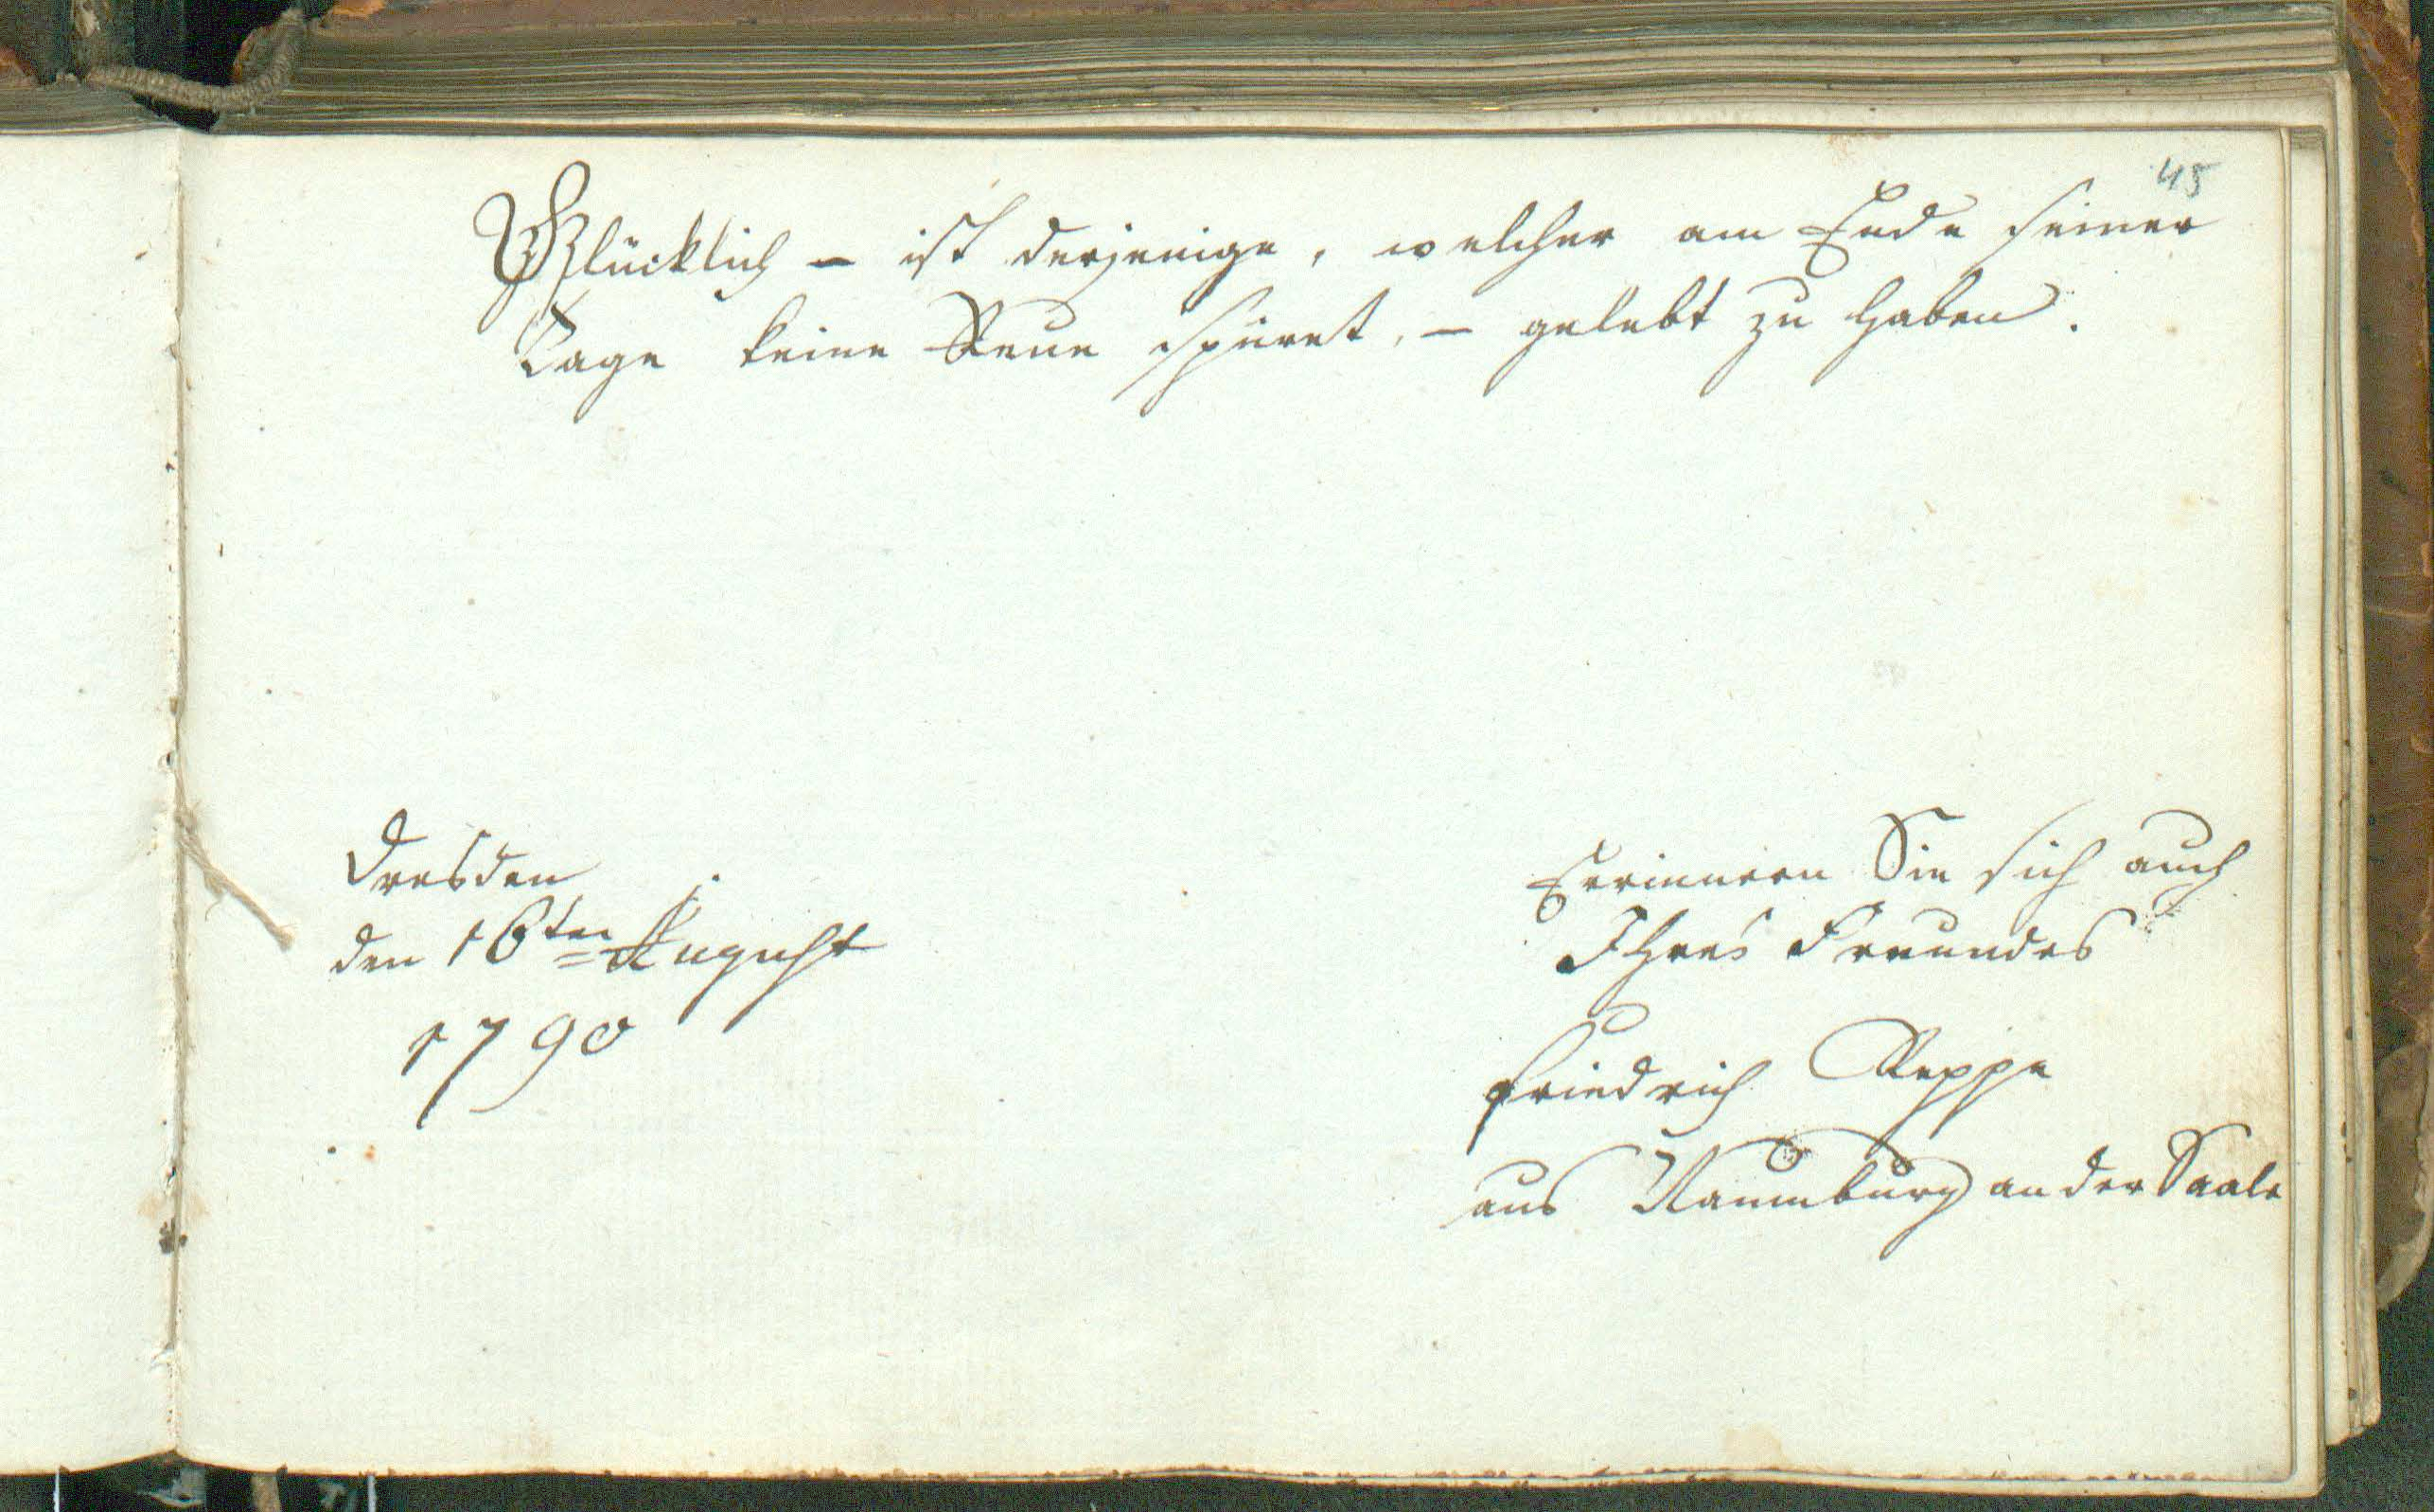 45
Glücklich – ist derjenige, welcher am Ende seiner
Tage keine Reue spüret, – gelebt zu haben.
Dresden
den 16ten August
1790
Errinnern Sie sich auch
Ihres Freundes
Friedrich Reppe
aus Naumburg an der Saale